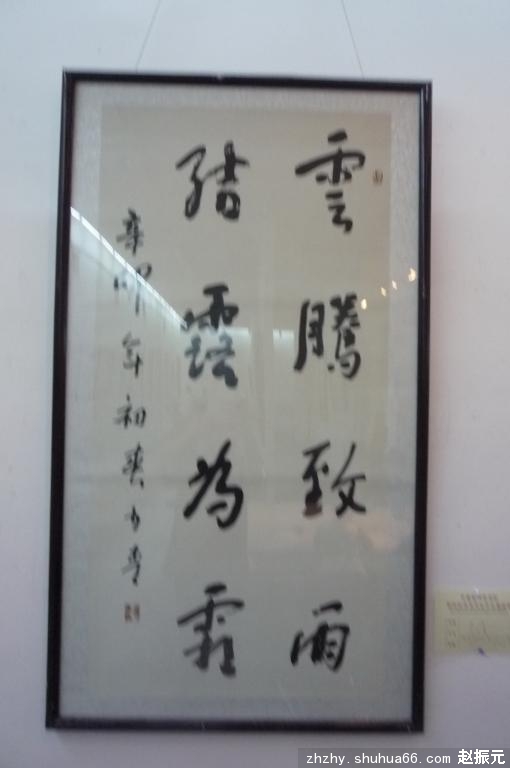 雲騰致雨
結露為霜
辛卯年初
zhzhy.shuhua66.com 赵振元